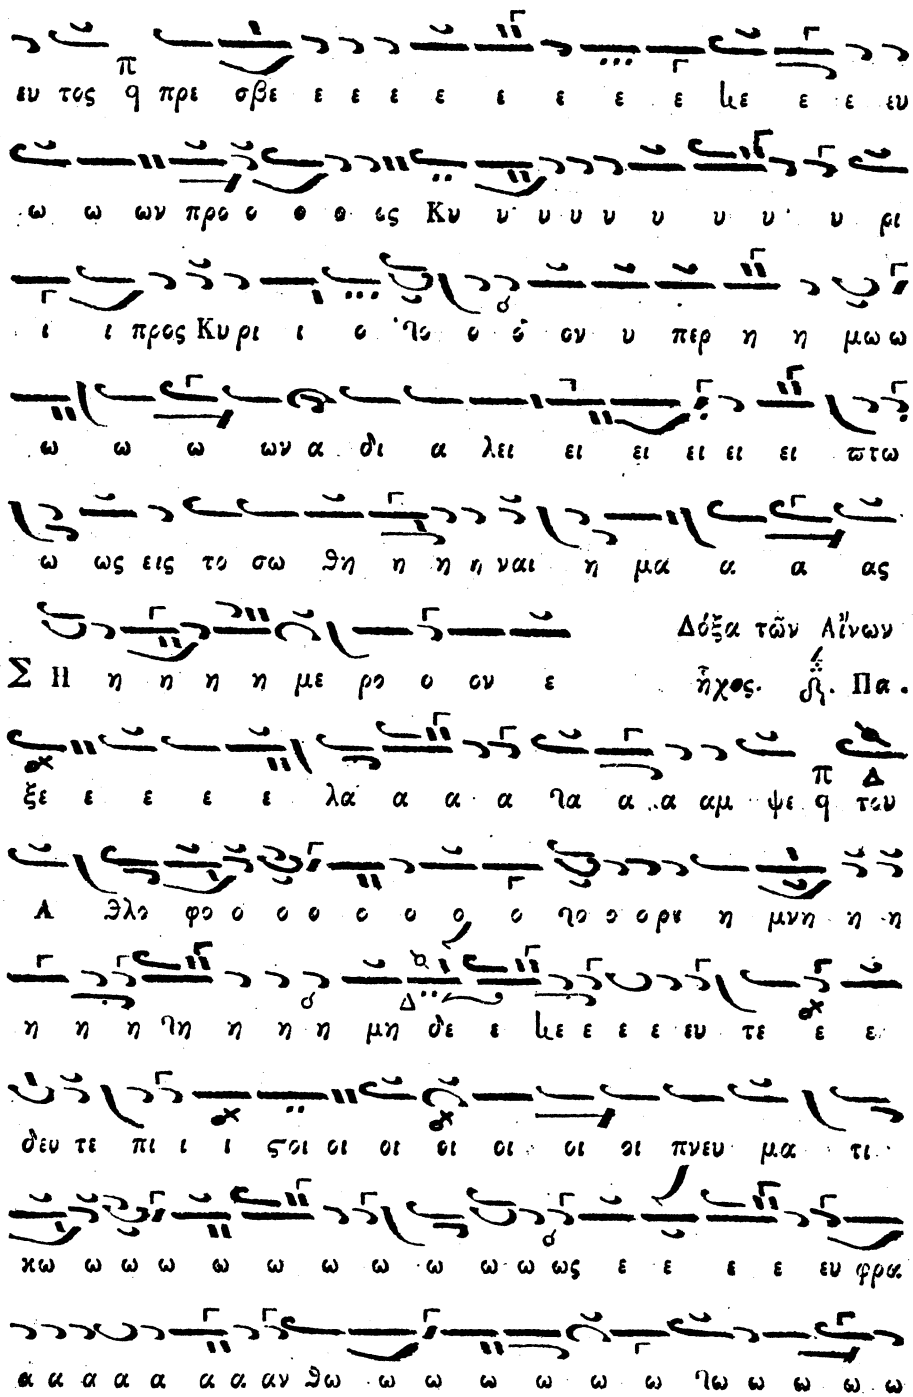 ευ τος πρε σβε ε ε ε ε ε ε ε ε κε ε ε ευ
ω ω ων προ ο ο ο ος Κυ υ υ υ υ υ υ υ υ ρι
ι ι προς Κυ ρι ι ο το ο ο ον υ περ η η μω ω
ω ω ω ων α δι α λει ει ει ει ει ει πτω
ω ως εις το σω θη η η η ναι η μα α α ας
Δόξα τῶν Αἴνων
Σ Η η η η η με ρο ο ον ε ἦχος. Πα.
ξε ε ε ε ε λα α α α τα α α αμ ψε του
Α θλο φο ο ο ο ο ο ο ο το ο ο ρυ η μνη η η
η η η τη η η η μη δε ε κε ε ε ε ευ τε ε ε
δευ τε πι ι ι ςοι οι οι οι οι οι οι πνευ μα τι
κω ω ω ω ω ω ω ω ω ω ω ως ε ε ε ε ευ φρα
α α α α α α α αν θω ω ω ω ω ω ω τω ω ω ω ω